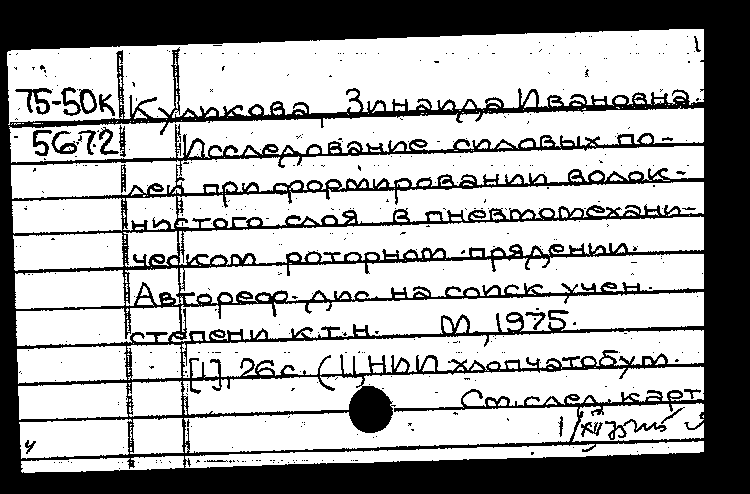 75-50к Куликова, Зинаида Ивановна.
5672 Исследование силовых по-
лей при формировании волок-
нистого слоя в пневмомехани-
ческом роторном прядении.
Автореф. дис. на соиск учен.
степени к.т.н. М., 1975.
[1], 26 с. (ЦНИИ хлопчатобум.
См. след. карт